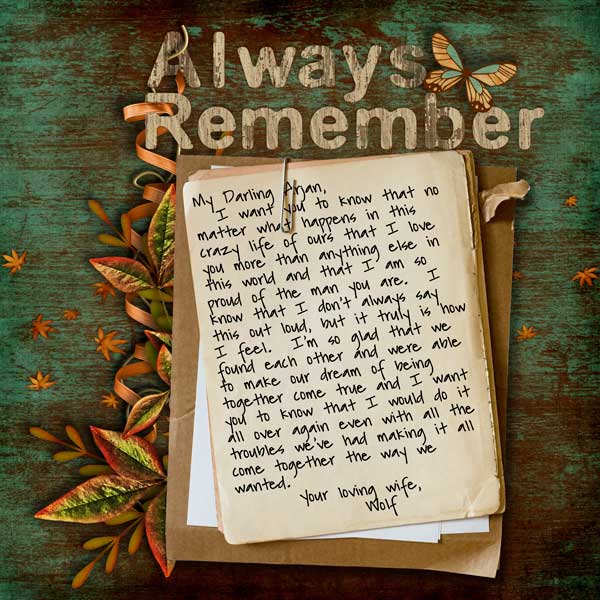 Always
Remember
My Darling Arjan,
I want you to know that no
matter what happens in this
crazy life of ours that I love
you more than anything else in
this world and that I am so
proud of the man you are. I
know that I don't always say
this out loud, but it truly is how
I feel. I'm so glad that we
found each other and were able
to make our dream of being
together come true and I want
you to know that I would do it
all over again even with all the
troubles we've had making it all
come together the way we
wanted.
Your loving wife,
Wolf